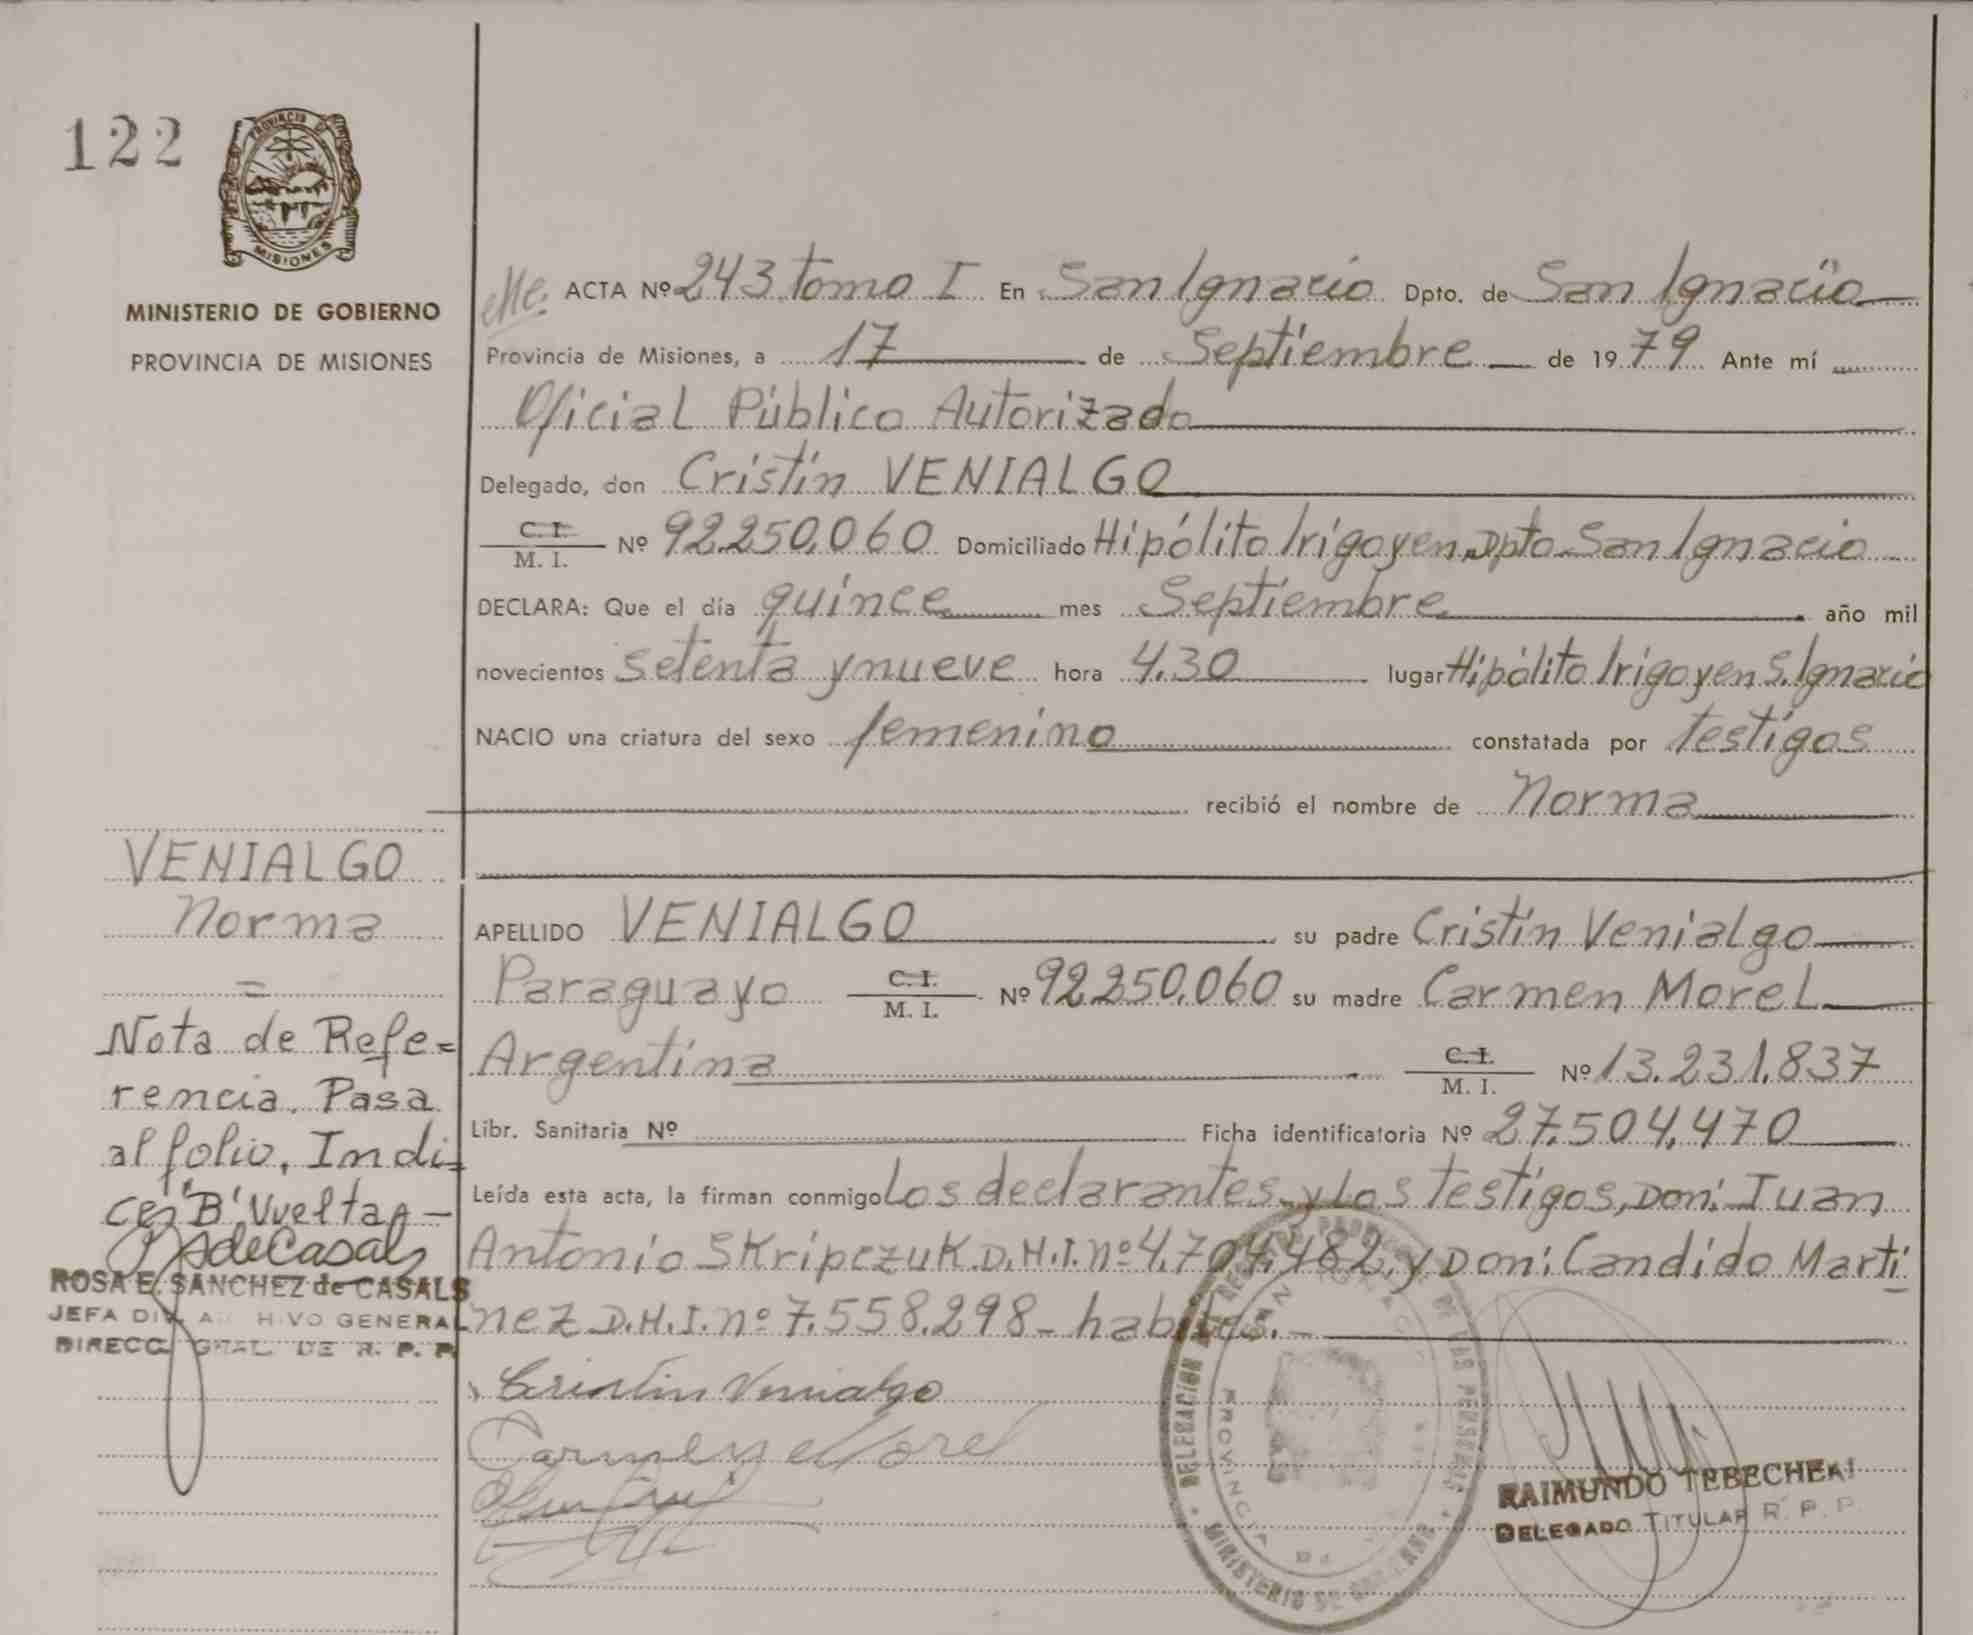 122
PROVINCIA DE
MISIONES
MINISTERIO DE GOBIERNO
PROVINCIA DE MISIONES
ACTA Nº 243 tomo I En San Ignacio Dpto. de San Ignacio
Provincia de Misiones, a 17 de Septiembre de 1979 Ante mí
Oficial Público Autorizado
Delegado, don Cristín VENIALGO
C. I.
M. I. Nº 92.250.060 Domiciliado Hipólito Irigoyen, Dpto San Ignacio
DECLARA: Que el día quince mes Septiembre año mil
novecientos setenta y nueve hora 4.30 lugar Hipólito Irigoyen S. Ignacio
NACIO una criatura del sexo femenino constatada por testigos
recibió el nombre de Norma
VENIALGO
Norma
=
Nota de Refe=
rencia. Pasa
al folio, Indi=
ces "B" Vuelta -
RsdeCasals
ROSA E. SANCHEZ de CASALS
JEFA DIV. ARCHIVO GENERAL
DIRECC. GRAL. DE R. P. P.
APELLIDO VENIALGO su padre Cristín Venialgo
Paraguayo C. I. M. I. Nº 92.250.060 su madre Carmen Morel
Argentina C. I. M. I. Nº 13.231.837
Libr. Sanitaria Nº Ficha identificatoria Nº 27.504.470
Leída esta acta, la firman conmigo Los declarantes y Los testigos, Don: Juan
Antonio Skripczuk D.N.I. nº 4.704.482, y Don: Candido Marti
nez D.N.I. nº 7.558.298 - habiles. -
Cristin Venialgo
Carmen Morel
DELEGACION DEL REGISTRO PROVINCIAL DE LAS PERSONAS
MINISTERIO DE GOBIERNO
SAN IGNACIO
PROVINCIA DE
RAIMUNDO TEBECHERI
DELEGADO TITULAR R. P. P.